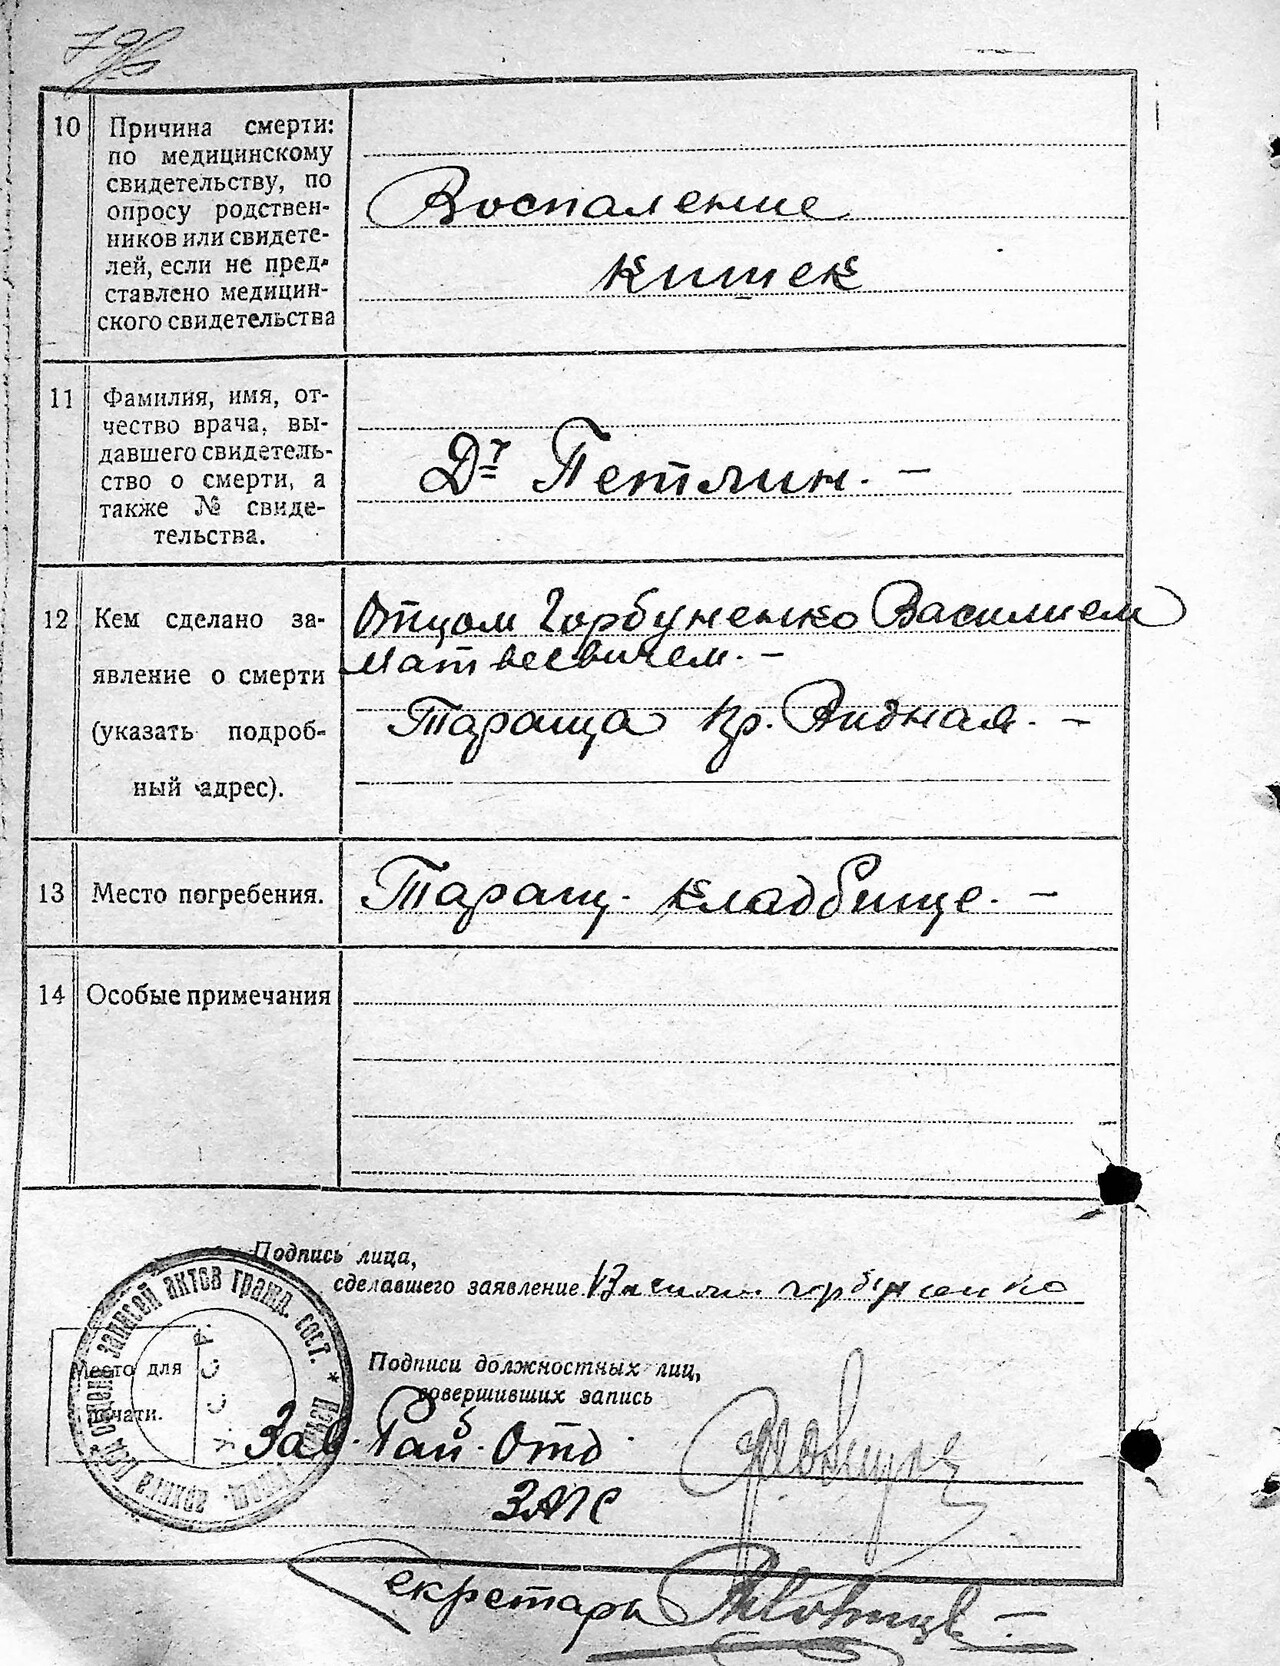 796
10 Причина смерти:
по медицинскому
свидетельству, по
опросу родствен-
ников или свидете-
лей, если не пред-
ставлено медицин-
ского свидетельства
Воспаление
кишек
11 Фамилия, имя, от-
чество врача, вы-
давшего свидетель-
ство о смерти, а
также № свиде-
тельства.
Др Петлин. —
12 Кем сделано за-
явление о смерти
(указать подроб-
ный адрес).
Отцом Горбуненко Василием
Матвеевичем. —
Тараща —
13 Место погребения.
Таращ. кладбище. —
14 Особые примечания
Подпись лица,
сделавшего заявление Горбуненко
Место для
печати.
записей актов гражд. сост. *
У.С.С.Р.
Подписи должностных лиц,
совершивших запись
Зав. Рай. Отд
ЗАГС
Секретарь